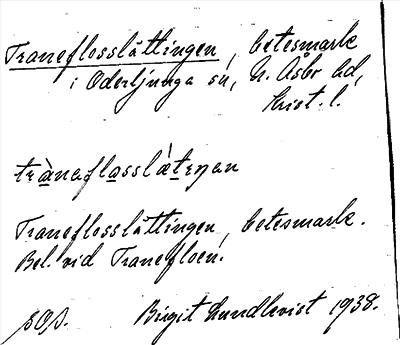 Traneflosslättingen, betesmark
i Oderljunga sn, N. Åsbo hd,
Krist. l.
trànaflasslætŋan
Traneflosslättingen, betesmark.
Bel. vid Tranefloen.
Birgit Lundkvist 1938.